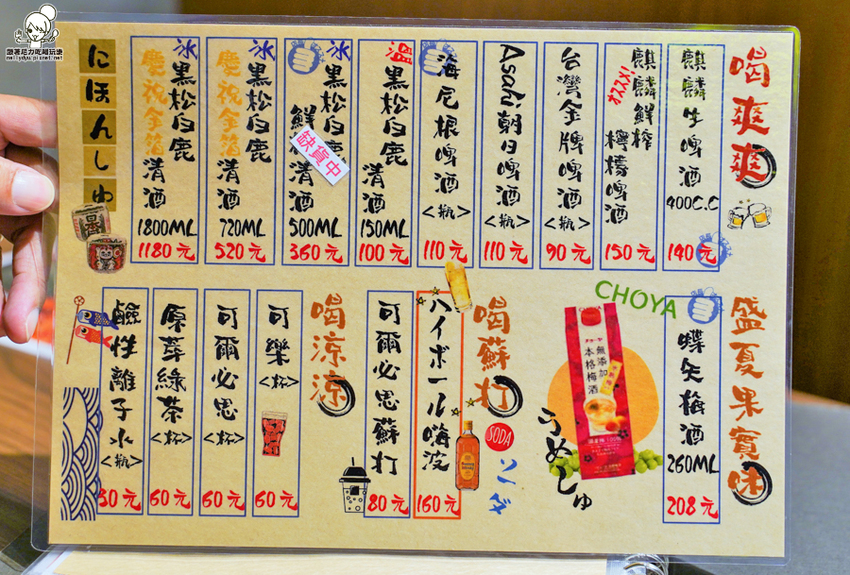 跟著尼力吃喝玩樂
nellydyu.pixnet.net
喝爽爽
麒麟生啤酒
400C.C
140元
麒麟鮮搾檸檬啤酒
150元
台灣金牌啤酒
<瓶>
90元
Asahi朝日啤酒
<瓶>
110元
海尼根啤酒
<瓶>
110元
溫黑松白鹿清酒
150ML
100元
冰黑松白鹿
鮮
清酒
缺貨中
500ML
360元
冰黑松白鹿
慶祝金箔清酒
720ML
520元
冰黑松白鹿
慶祝金箔清酒
1800ML
1180元
にほんしゅ
盛夏果實味
蝶矢梅酒
260ML
208元
CHOYA
無添加
本格梅酒
うめしゅ
喝蘇打
SODA
ソーダ
ハイボール嗨波
160元
可爾必思蘇打
80元
喝涼涼
可樂
<杯>
60元
可爾必思
<杯>
60元
原萃綠茶
<杯>
60元
鹼性離子水
<瓶>
30元